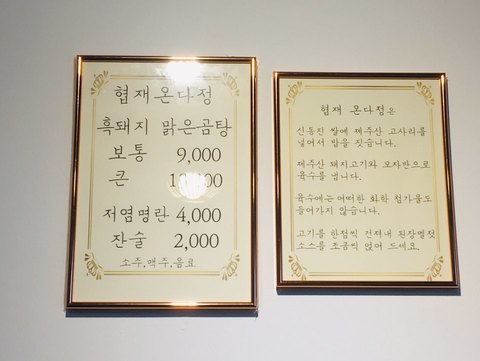 협재온다정
흑돼지 맑은곰탕
보통 9,000
큰
저염명란 4,000
잔술 2,000
소주,맥주,음료
협재 온다정은
신동진 쌀에 제주산 고사리를
넣어서 밥을 짓습니다.
제주산 돼지고기와 모자반으로
육수를 냅니다.
육수에는 어떠한 화학 첨가물도
들어가지 않습니다.
고기를 한점씩 건져내 된장멜젓
소스를 조금씩 얹어 드세요.